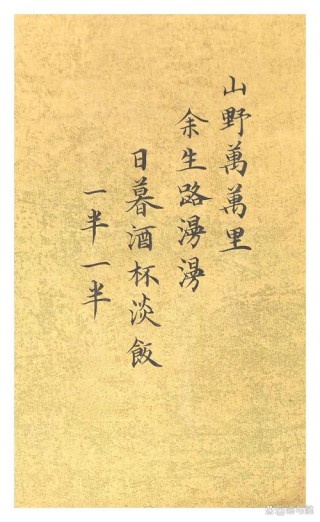 山野萬萬里
余生路漫漫
日暮酒杯淡飯
一半一半